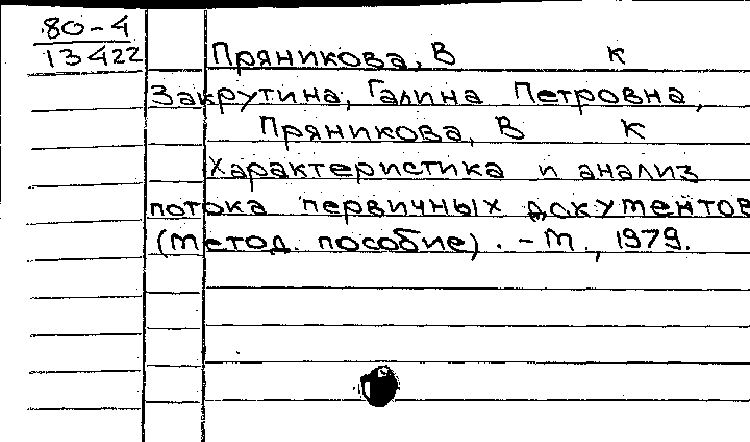 80-4
13422
Пряникова, В к
Закрутина, Галина Петровна,
Пряникова, В К
Характеристика и анализ
потока первичных документов
(Метод. пособие). - М., 1979.